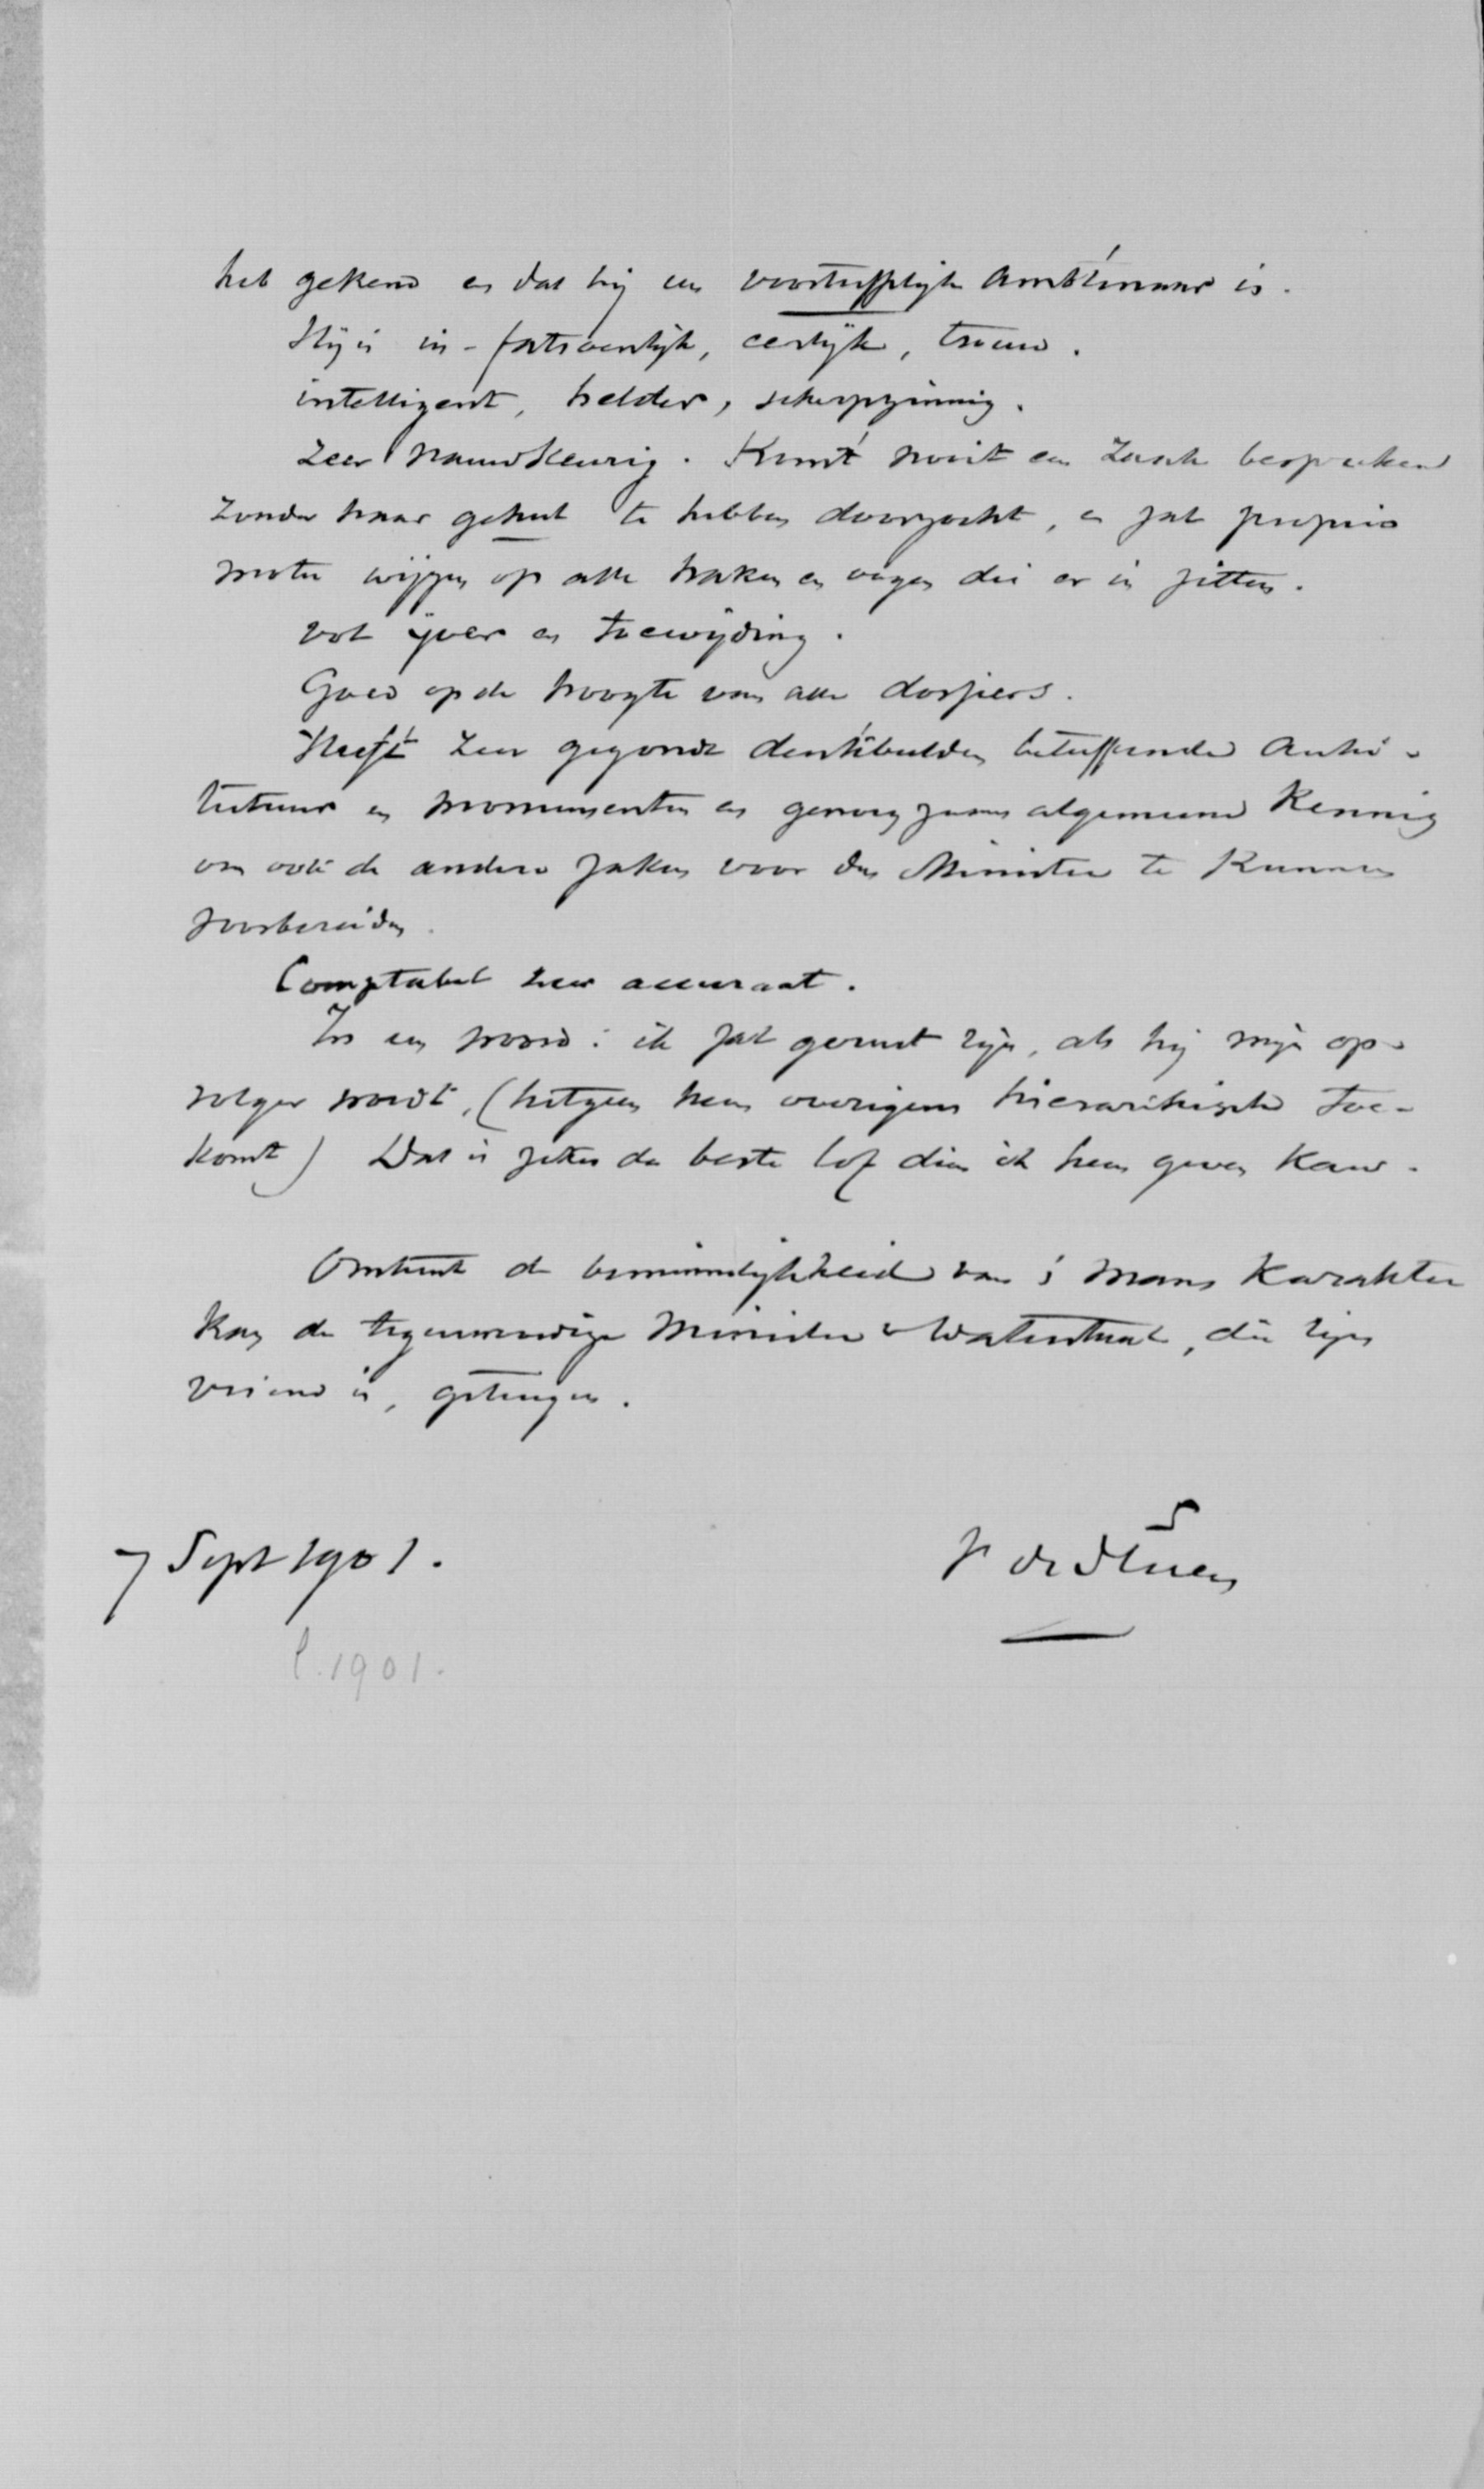 heb gekend en dat hij een voortreffelijk Ambtenaar is.
Hij is in-fatsoenlijk, eerlijk, trouw.
intelligent, helder, scherpzinnig.
Zeer nauwkeurig. Komt nooit een zaak bespreken
zonder haar geheel te hebben doorzocht, en zal proprio
motu wijzen op alle haken en oogen die er in zitten.
vol ijver en toewijding.
Goed op de hoogte van alle dossiers.
Heeft zeer gezonde denkbeelden betreffende Archi-
tectuur en monumenten en genoegzame algemeene Kennis
om ook de andere zaken voor den Minister te Kunnen
voorbereiden.
Comptabel zeer accuraat.
In een woord: ik zal gerust zijn, als hij mijn op-
volger wordt, (hetgeen hem overigens hierarchisch toe-
komt) Dat is zeker de beste lof dien ik hem geven kan.
Omtrent de beminnelijkheid van 's mans Karakter
kan de tegenwoordige Minister v Waterstaat, die zijn
vriend is, getuigen.
7 Sept 1901.
V de Stuers
l. 1901.